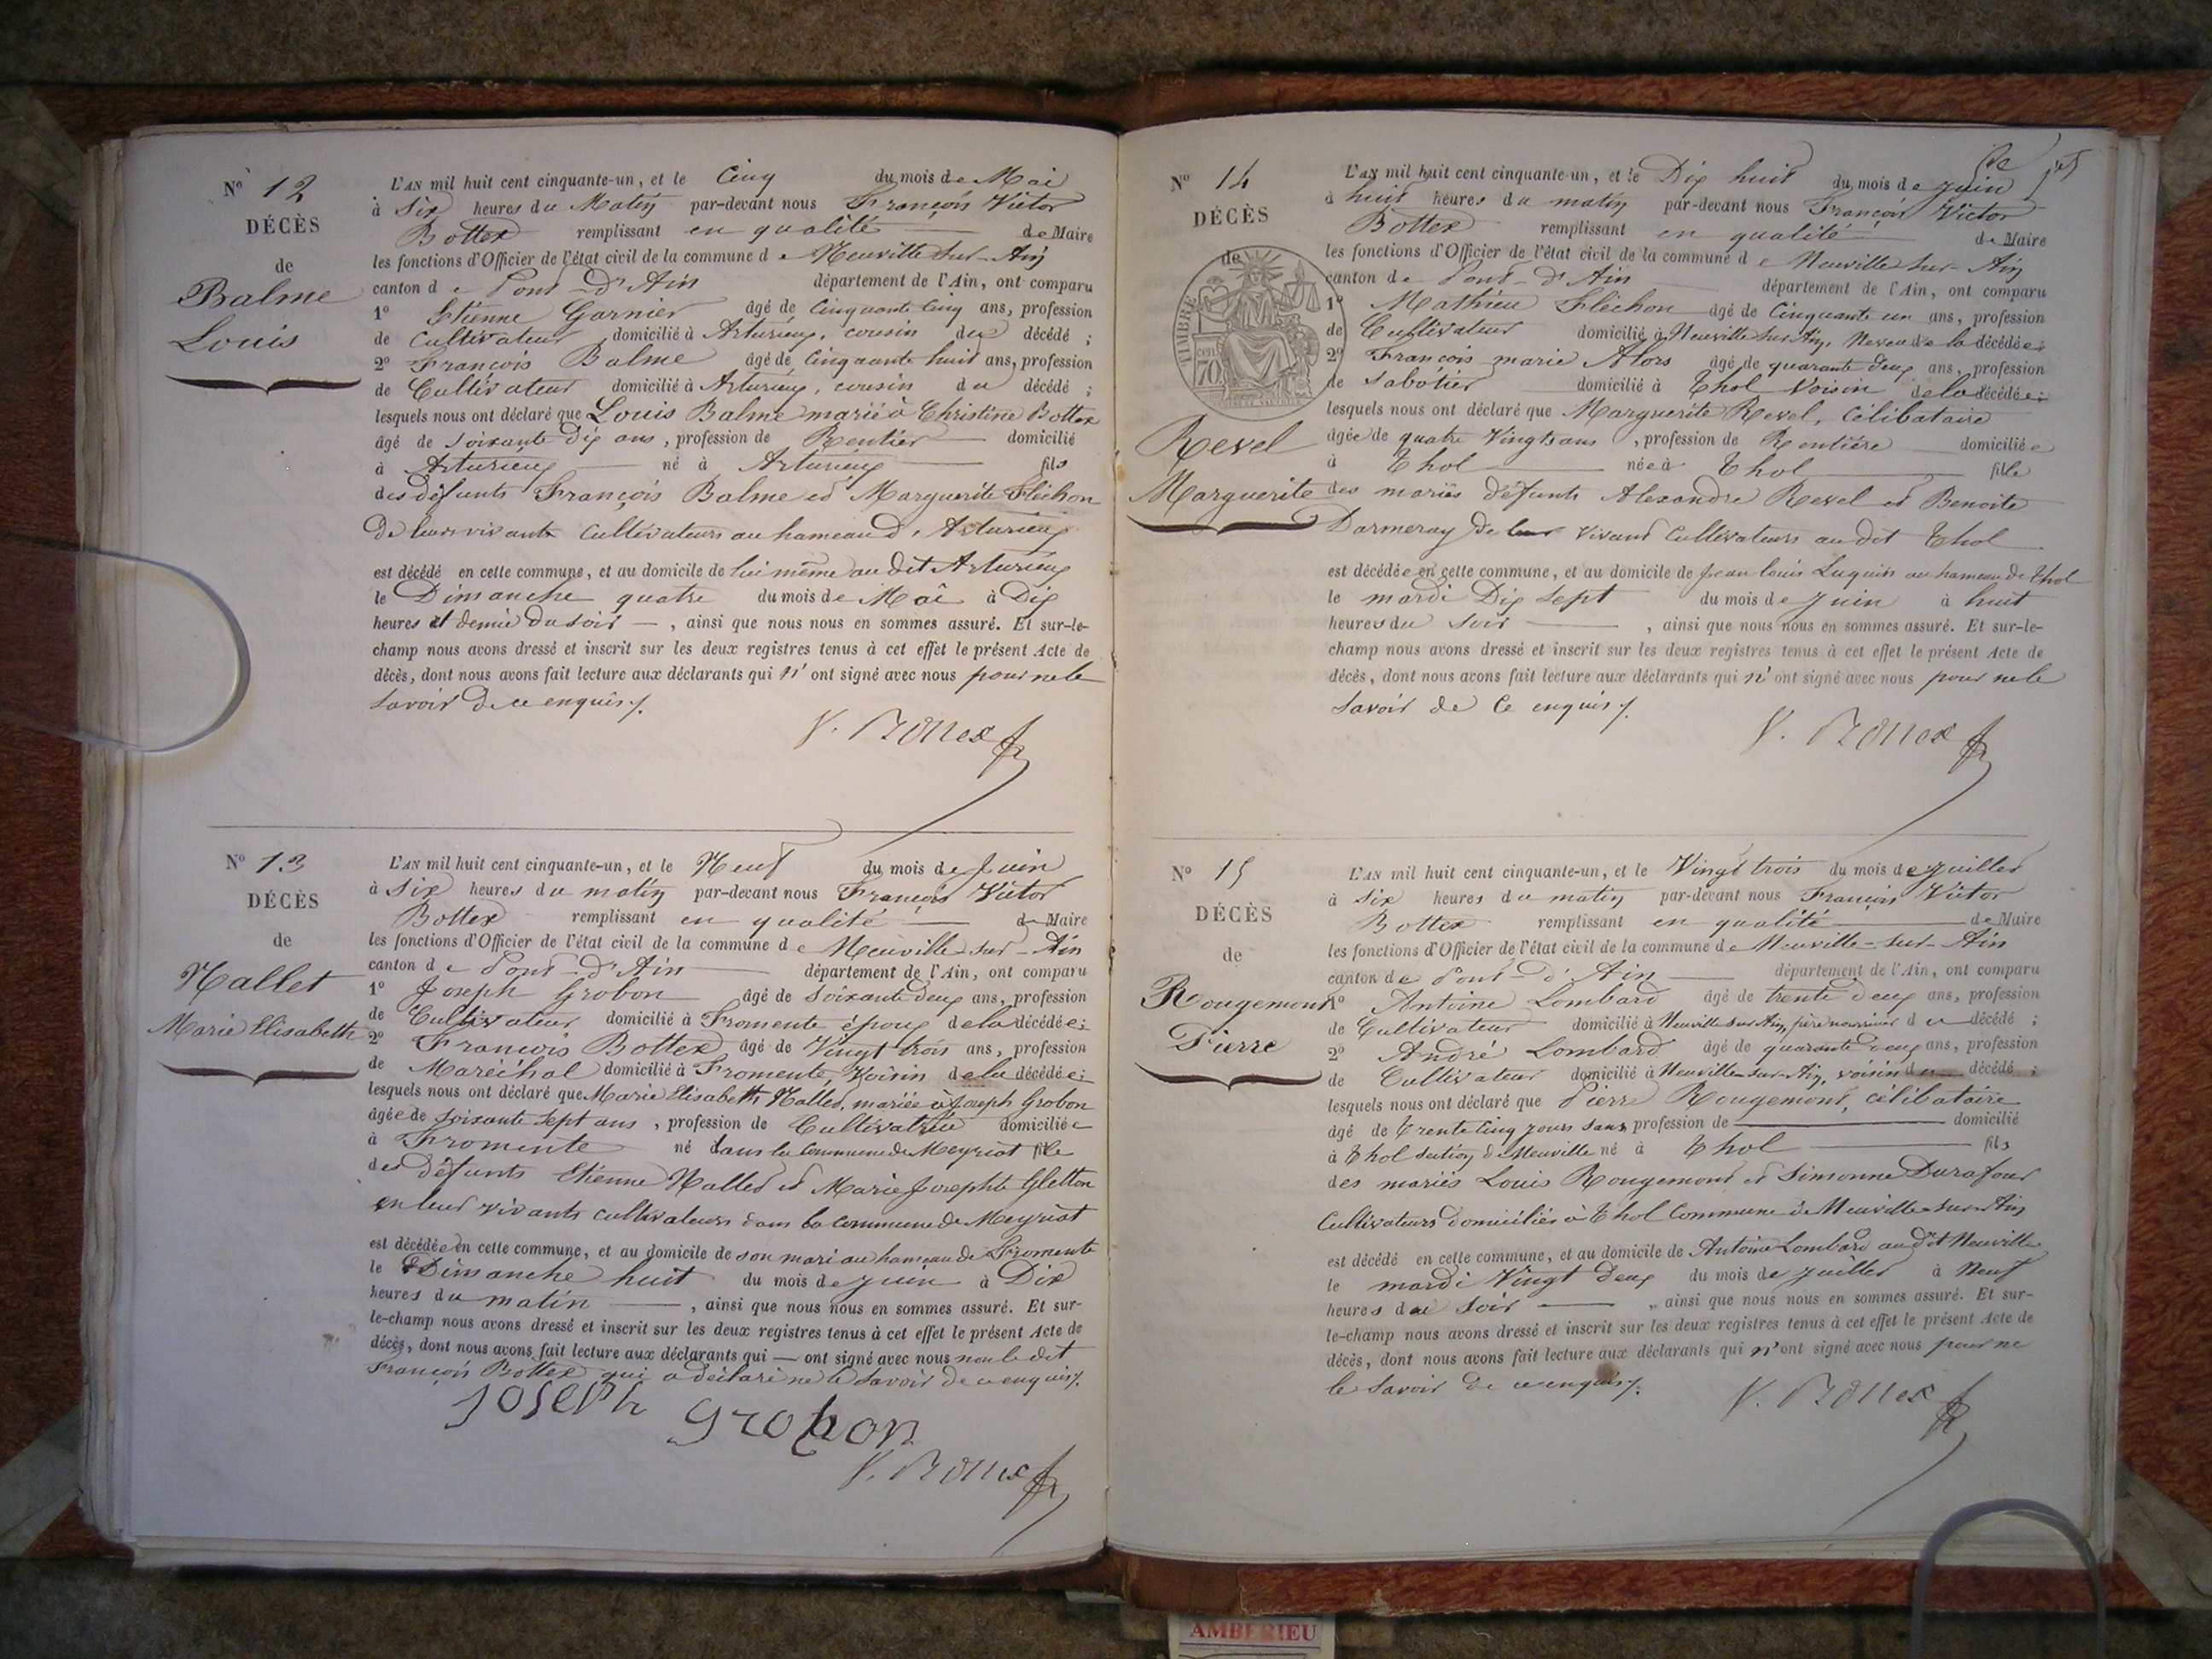 N° 12
DÉCÈS
de
Balme
Louis
L'AN mil huit cent cinquante-un, et le Cinq du mois de Mai
à Six heures du Matin par-devant nous François Victor
Bottex remplissant en qualité de Maire
les fonctions d'Officier de l'état civil de la commune de Neuville sur-Ain
canton de Pont-D'Ain département de l'Ain, ont comparu
1° Etienne Garnier âgé de Cinquante Cinq ans, profession
de Cultivateur domicilié à Arturieux, cousin du décédé ;
2° François Balme âgé de Cinquante huit ans, profession
de Cultivateur domicilié à Arturieux, cousin du décédé ;
lesquels nous ont déclaré que Louis Balme marié à Christine Bottex
âgé de soixante Dix ans, profession de Rentier domicilié
à Arturieux né à Arturieux fils
des défunts François Balme et Marguerite Fléchon
De leurs vivants Cultivateurs au hameau d'Arturieux
est décédé en cette commune, et au domicile de lui même au dit Arturieux
le Dimanche quatre du mois de Mai à Dix
heures et demie du soir, ainsi que nous nous en sommes assuré. Et sur-le-
champ nous avons dressé et inscrit sur les deux registres tenus à cet effet le présent Acte de
décès, dont nous avons fait lecture aux déclarants qui n'ont signé avec nous pour ne le
savoir De ce enquis.
V. Bottex
N° 13
DÉCÈS
de
Nallet
Marie Elisabeth
L'AN mil huit cent cinquante-un, et le Neuf du mois de Juin
à Six heures du matin par-devant nous François Victor
Bottex remplissant en qualité de Maire
les fonctions d'Officier de l'état civil de la commune de Neuville-sur-Ain
canton de Pont-D'Ain département de l'Ain, ont comparu
1° Joseph Grobon âgé de Soixante deux ans, profession
de Cultivateur domicilié à Fromente époux de la décédée ;
2° François Bottex âgé de Vingt trois ans, profession
de Maréchal domicilié à Fromente, Voisin de la décédée ;
lesquels nous ont déclaré que Marie Elisabeth Nallet, mariée à Joseph Grobon
âgée de soixante sept ans, profession de Cultivatrice domiciliée
à Fromente né dans la Commune de Meyriat fille
des défunts Etienne Nallet et Marie Josephte Gletton
en leur vivants cultivateurs dans la commune de Meyriat
est décédée en cette commune, et au domicile de son mari au hameau de Fromente
le Dimanche huit du mois de Juin à Dix
heures du matin, ainsi que nous nous en sommes assuré. Et sur-
le-champ nous avons dressé et inscrit sur les deux registres tenus à cet effet le présent Acte de
décès, dont nous avons fait lecture aux déclarants qui — ont signé avec nous non le dit
François Bottex qui a déclaré ne le savoir de ce enquis.
Joseph Grobon
V. Bottex
N° 14
DÉCÈS
de
TIMBRE
70
Revel
Marguerite
L'AN mil huit cent cinquante-un, et le Dix huit du mois de Juin
à huit heures du matin par-devant nous François Victor
Bottex remplissant en qualité de Maire
les fonctions d'Officier de l'état civil de la commune de Neuville-sur-Ain
canton de Pont-d'Ain département de l'Ain, ont comparu
1° Mathieu Fléchon âgé de Cinquante un ans, profession
de Cultivateur domicilié à Neuville sur Ain, Neveu de la décédée ;
2° François marie Alors âgé de quarante deux ans, profession
de Sabotier domicilié à Thol Voisin de la décédée ;
lesquels nous ont déclaré que Marguerite Revel, Célibataire
âgée de quatre Vingts ans, profession de Rentière domiciliée
à Thol née à Thol fille
des mariés défunts Alexandre Revel et Benoite
Darmeray De leur Vivant Cultivateurs au dit Thol
est décédée en cette commune, et au domicile de Jean louis Luquin au hameau de Thol
le mardi Dix Sept du mois de Juin à huit
heures du Soir, ainsi que nous nous en sommes assuré. Et sur-le-
champ nous avons dressé et inscrit sur les deux registres tenus à cet effet le présent Acte de
décès, dont nous avons fait lecture aux déclarants qui n'ont signé avec nous pour ne le
savoir de Ce enquis.
V. Bottex
N° 15
DÉCÈS
de
Rougemont
Pierre
L'AN mil huit cent cinquante-un, et le Vingt trois du mois de Juillet
à six heures du matin par-devant nous François Victor
Bottex remplissant en qualité de Maire
les fonctions d'Officier de l'état civil de la commune de Neuville-sur-Ain
canton de Pont-d'Ain département de l'Ain, ont comparu
1° Antoine Lombard âgé de trente deux ans, profession
de Cultivateur domicilié à Neuville sur Ain, père nourricier du décédé ;
2° André Lombard âgé de quarante deux ans, profession
de Cultivateur domicilié à Neuville-sur-Ain, voisin du décédé ;
lesquels nous ont déclaré que Pierre Rougemont, célibataire
âgé de trente Cinq jours sans profession de domicilié
à Thol section de Neuville né à Thol fils
des mariés Louis Rougemont et Simonne Durafour
Cultivateurs domiciliés à Thol Commune de Neuville-sur-Ain
est décédé en cette commune, et au domicile de Antoine Lombard au dit Neuville
le mardi Vingt deux du mois de Juillet à Neuf
heures du Soir, ainsi que nous nous en sommes assuré. Et sur-
le-champ nous avons dressé et inscrit sur les deux registres tenus à cet effet le présent Acte de
décès, dont nous avons fait lecture aux déclarants qui n'ont signé avec nous pour ne
le savoir de ce enquis.
V. Bottex
AMBERIEU